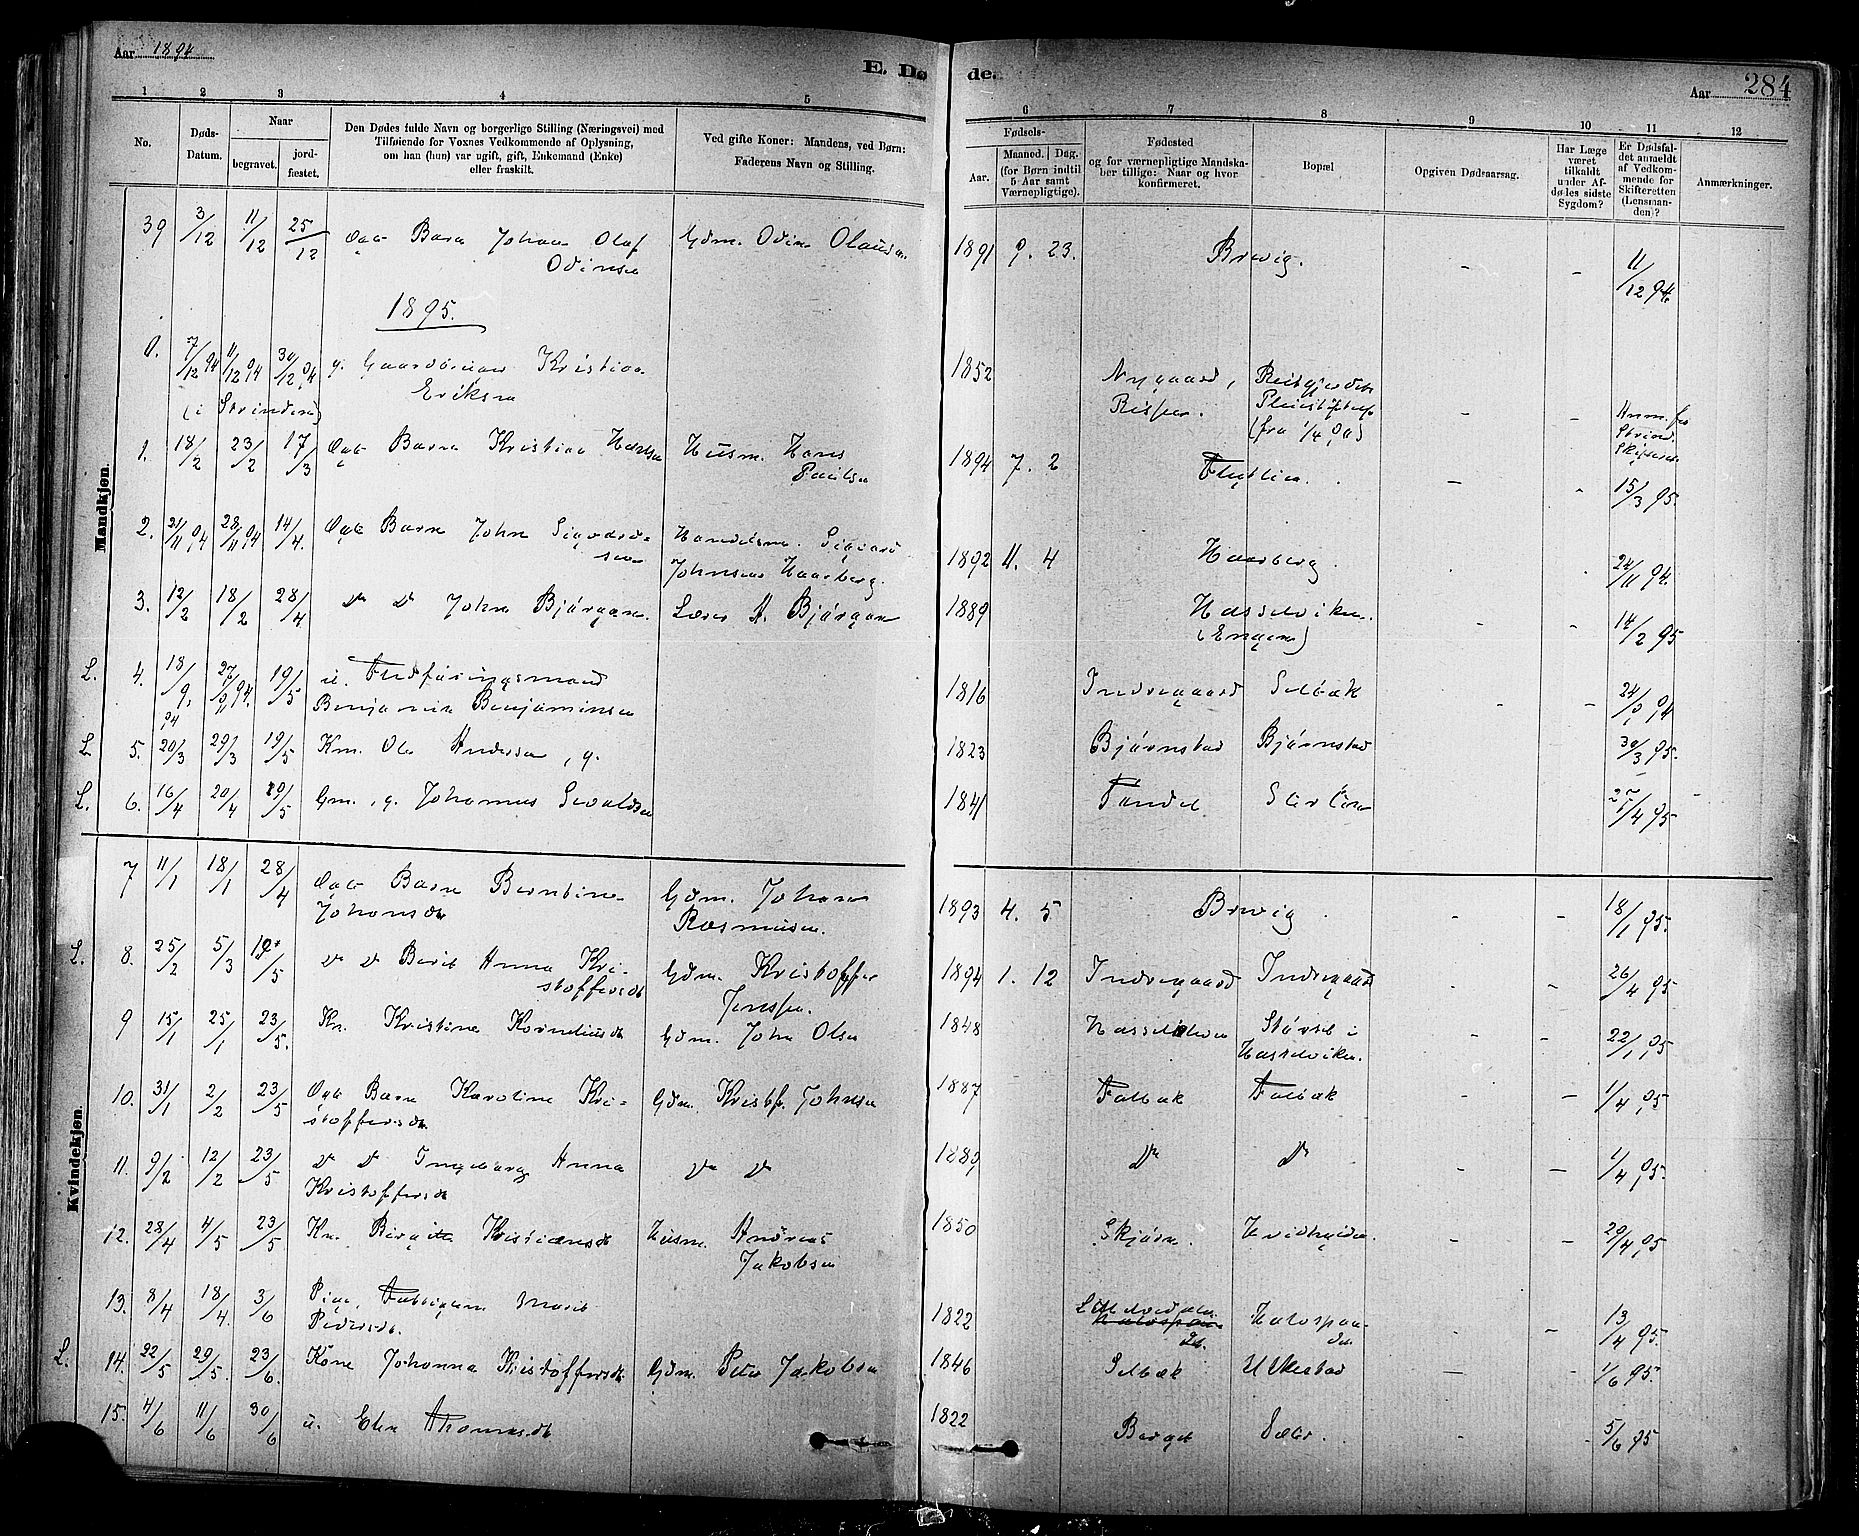 Aar 1894
E. Dø de.
284
Aar
1 2 3 4 5 6 7 8 9 10 11 12
No.
Døds-
Datum.
Naar
begravet.
jord-
fæstet.
Den Dødes fulde Navn og borgerlige Stilling (Næringsvei) med
Tilføiende for Voxnes Vedkommende af Oplysning,
om han (hun) var ugift, gift, Enkemand (Enke)
eller fraskilt.
Ved gifte Koner: Mandens, ved Børn:
Faderens Navn og Stilling.
Fødsels-
Aar.
Maaned. Dag.
(for Børn indtil
5 Aar samt
Værnepligtige).
Fødested
og for værnepligtige Mandska-
ber tillige: Naar og hvor
konfirmeret.
Bopæl
Opgiven Dødsaarsag.
Har Læge
været
tilkaldt
under Af-
dødes sidste
Sygdom?
Er Dødsfal-
det anmeldt
af Vedkom-
mende for
Skifteretten
(Lensman-
den)?
Anmærkninger.
Mandkjøn.
39 3/12 11/12 25/12 Barn Johan Olaf Gdm. Odin Olausen 1891 9. 23. Brevig. - - 11/12 94.
Odinsen
1895.
0. 7/12 94 11/12 94 30/12 94 g. Gaardbruger Kristian 1852 Nygaard, Reitgjerdets
(i Strinden) Eriksen Rissen. Pleiestiftelse - - Anm. fra
(fra 1/4 90) Strind.
1. 18/2 23/2 17/3 Barn Kristian Hansen Husm. Hans 1894 7. 2 - - 15/3 95.
Paulsen
2. 21/11 94 28/11 94 14/4. Barn John Sigvards- Handelsm. Sigvard 1892 11. 4 Haarberg 24/11 94.
sen Johnsen Haarberg.
3. 12/2 18/2 28/4 Do Do John Bjørgan. Lærer A. Bjørgan 1889 Hasselviken. - - 14/2 95
(Engen)
L. 4. 18/9. 94 19/5 u. Indføringsmand 1816 Indregaard Selbæk - -
Benjamin Benjaminsen
L 5. 20/3 29/3 19/5 Km. Ole Andersen, g. 1823 Bjørnstad Bjørnstad 30/3 95.
L. 6. 16/4 20/4 19/5 Gm., g. Johannes Sivaldsen 1841
Kvindekjøn.
7 11/1 18/1 28/4 Barn Berntine Gdm. Johan 1893 4. 5 Brevig - - 18/1 95.
Johansdt Rasmussen.
L. 8. 25/2 5/3 19/5 Do Do Berit Anna Kri- Gdm. Kristoffer 1894 1. 12 Indregaard Indregaard - - 26/4 95
stoffersdt Jenssen.
9 15/1 25/1 23/5. Kn. Kristine Korneliusdt Gdm. John Olsen 1848 Størset i - - 22/1 95
Hasselviken.
10. 31/1 2/2 23/5 Barn Karoline Kri- Gdm. Kristfr. Johnsen 1887 Falbæk Falbæk - - 1/4 95
stoffersdt.
11. 9/2 12/2 23/5 Do Do Ingeborg Anna Do Do Do Do - - 1/4 95.
Kristoffersdt
12. 28/4 4/5 23/5 Kn. Birgitte Kristiansdt Husm. Andreas 1850 Skjørn. Hvidheiden 29/4 95
Jakobsen
13. 8/4 18/4. 3/6 Pige, Fattiglem Marit 1822 - - 13/4 95.
Pedersdt.
L. 14. 22/5 29/5. 23/6. Kone Johanna Kristoffersdt Gdm. Peter Jakobsen 1846 Selbæk Ulkestad - - 1/6 95.
15. 4/6 11/6 30/6 u. Elen Thomasdt 1822 Berget Sæter. - - 5/6 95